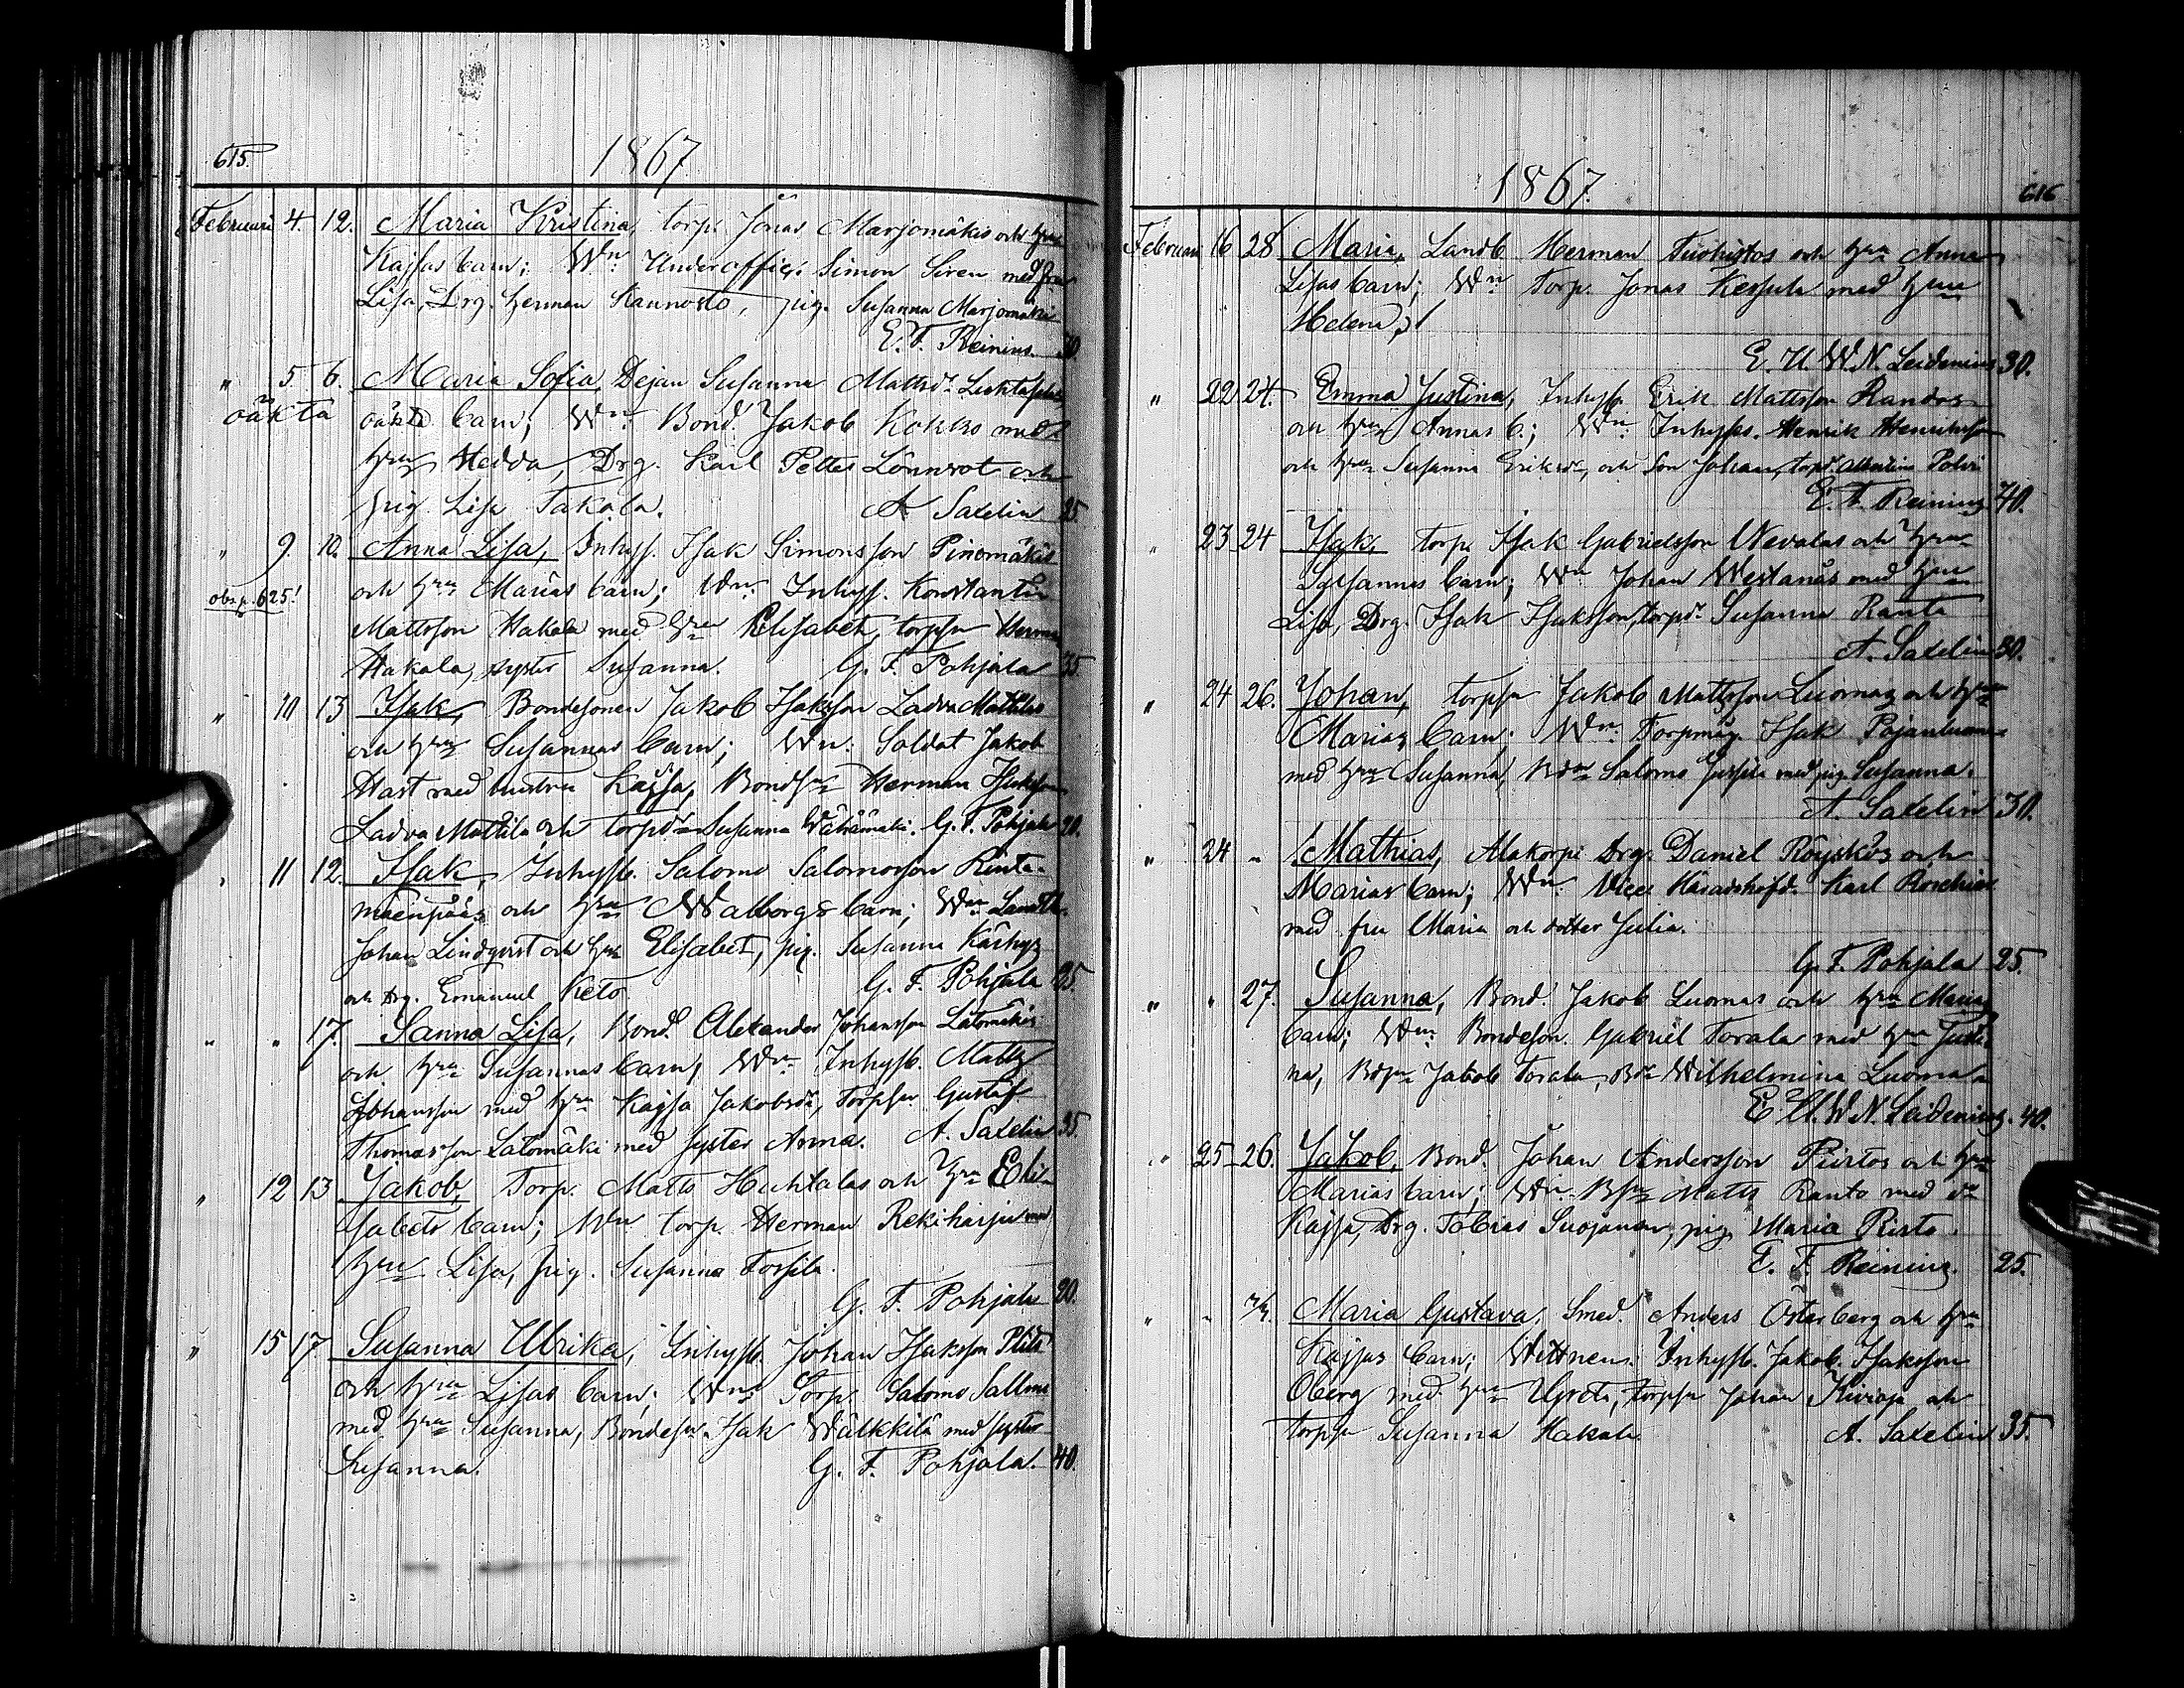 615.
1867
Februari 4. 12. Maria Kristina, torp. Jonas Marjomäkis och hru
Kajsas barn; Wn: Underoffic: Simon Siren med fru
Lisa, Drg. Herman Kannosto, pig. Susanna Marjomäki
E. F. Reinius. 30
" 5. 6. Maria Sofia, Dejan Susanna Mattsdr
oäkta oäkta barn; Wn: Bond. Jakob Kokko med
hru Hedda, Drg. Karl Petter Lönnrot och
pig. Lisa Takala. A. Saxelin 25
" 9. 10. Anna Lisa, Inhyss. Isak Simonsson Pinomäkis
obs. p. 625! och hru Marias barn; Wn: Inhyss. Konstantin
Mattsson Hakala med hru Elisabeth, torpsn Herman
Hakala, syster Susanna. G. F. Pohjala 35
" 10 13 Isak, Bondesonen Jakob Isaksson Ladva Mattilas
och hru Susannas barn; Wn: Soldat Jakob
Hast med hustru Kajsa, Bondsn Herman Isaksson
Ladva Mattila och torpdr Susanna Wähämäki. G. F. Pohjala 20.
" 11 12. Isak, Inhyss. Salomo Salomonsson Rinta-
mäenpääs och hru Walborgs barn; Wn: Landtb.
Johan Lindqvist och hru Elisabet, pig. Susanna Karhu
och drg. Emanuel Keto. G. F. Pohjala 25.
" " 17. Sanna Lisa, Bond. Alexander Johansson Latomäkis
och hru Susannas barn, Wn: Inhyss. Matts
Johansson med hru Kajsa Jakobsdr, Torpsn Gustaf
Thomasson Latomäki med syster Anna. A. Saxelin 35.
" 12 13 Jakob, Torp. Matts Huhtalas och hru Eli-
sabets barn; Wn: torp. Herman Rekiharju med
hru Lisa, pig. Susanna Torsila.
G. F. Pohjala 20.
" 15 17 Susanna Ulrika, Inhyss. Johan Isaksson
och hru Lisas barn; Wn: Torp. Salomo
med hru Susanna, Bondesn Isak Wälkkilä med syster
Susanna. G. F. Pohjala. 40.
1867.
616
Februari 16 28 Maria, Landb. Herman Tuohistos och hru Anna
Lisas barn; Wn: Torp. Jonas med hru
Helena,
E. U. W. N. Leidenius 30.
" 22 24. Emma Justina, Inhyss. Erik Mattsson Randas
och hru Annas b.; Wn: Inhysses. Henrik Henriksson
och hru Susanna Eriksdr, och son Johan, torpdr
E. F. Reinius 40.
" 23 24 Isak, torp. Isak Gabrielsson Nevalas och hru
Susannas barn; Wn: Johan Westanås med hru
Lisa, Drg. Isak Isaksson, torpdr Susanna Ranta
A. Saxelin 30.
" 24 26. Johan, torpsn Jakob Mattsson Luomas och hru
Marias barn; Wn: Torpmåg. Isak Pajanluoma
med hru Susanna, Bdsn Salomo Jussila med pig. Susanna.
A. Saxelin 30.
" 24 " Mathias, Alakorpi Drg. Daniel Röyskös och
Marias barn; Wn: Vice Häradshöfd. Karl Roschier
med fru Maria och dotter Julia.
G. F. Pohjala 25.
" " 27. Susanna, Bond. Jakob Luomas och hru Marias
barn; Wn: Bondeson. Gabriel Torala med hru Justi-
na, Bdsn Jakob Torala, Bdr Wilhelmina Luoma
E. U. W. N. Leidenius. 40.
" 25 26. Jakob, Bond. Johan Andersson Pirstos och hru
Marias barn; Wn: Bsn Matts Ranto med dr
Kajsa, Drg. Tobias Suojanen, pig. Maria Risto.
E. F. Reinius. 25.
" " 3/3. Maria Gustava, Smed. Anders Österberg och hru
Kajsas barn; Wittnen: Inhyss. Jakob Isaksson
Öberg med hru Greta, torpsn Johan Kivioja och
torpsn Susanna Hakala. A. Saxelin 35.